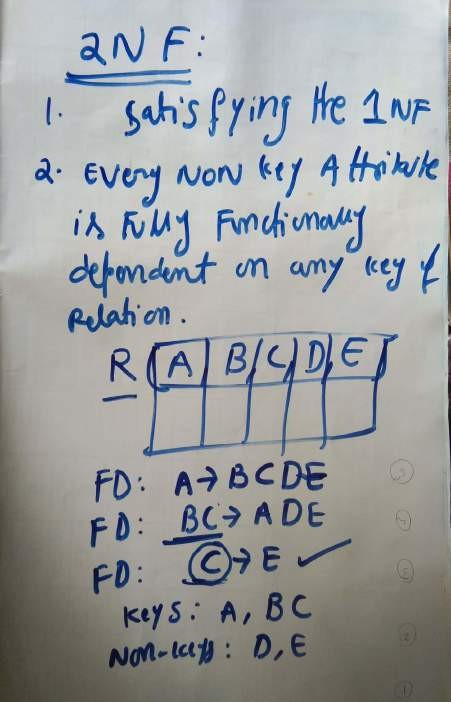 2NF:
1. Satisfying the 1NF
2. Every Non Key Attribute
is Fully Functionally
dependent on any key of
Relation.
R A B C D E
FD: A→BCDE
FD: BC→ADE
FD: C→E ✓
Keys: A, BC
Non-keys: D, E